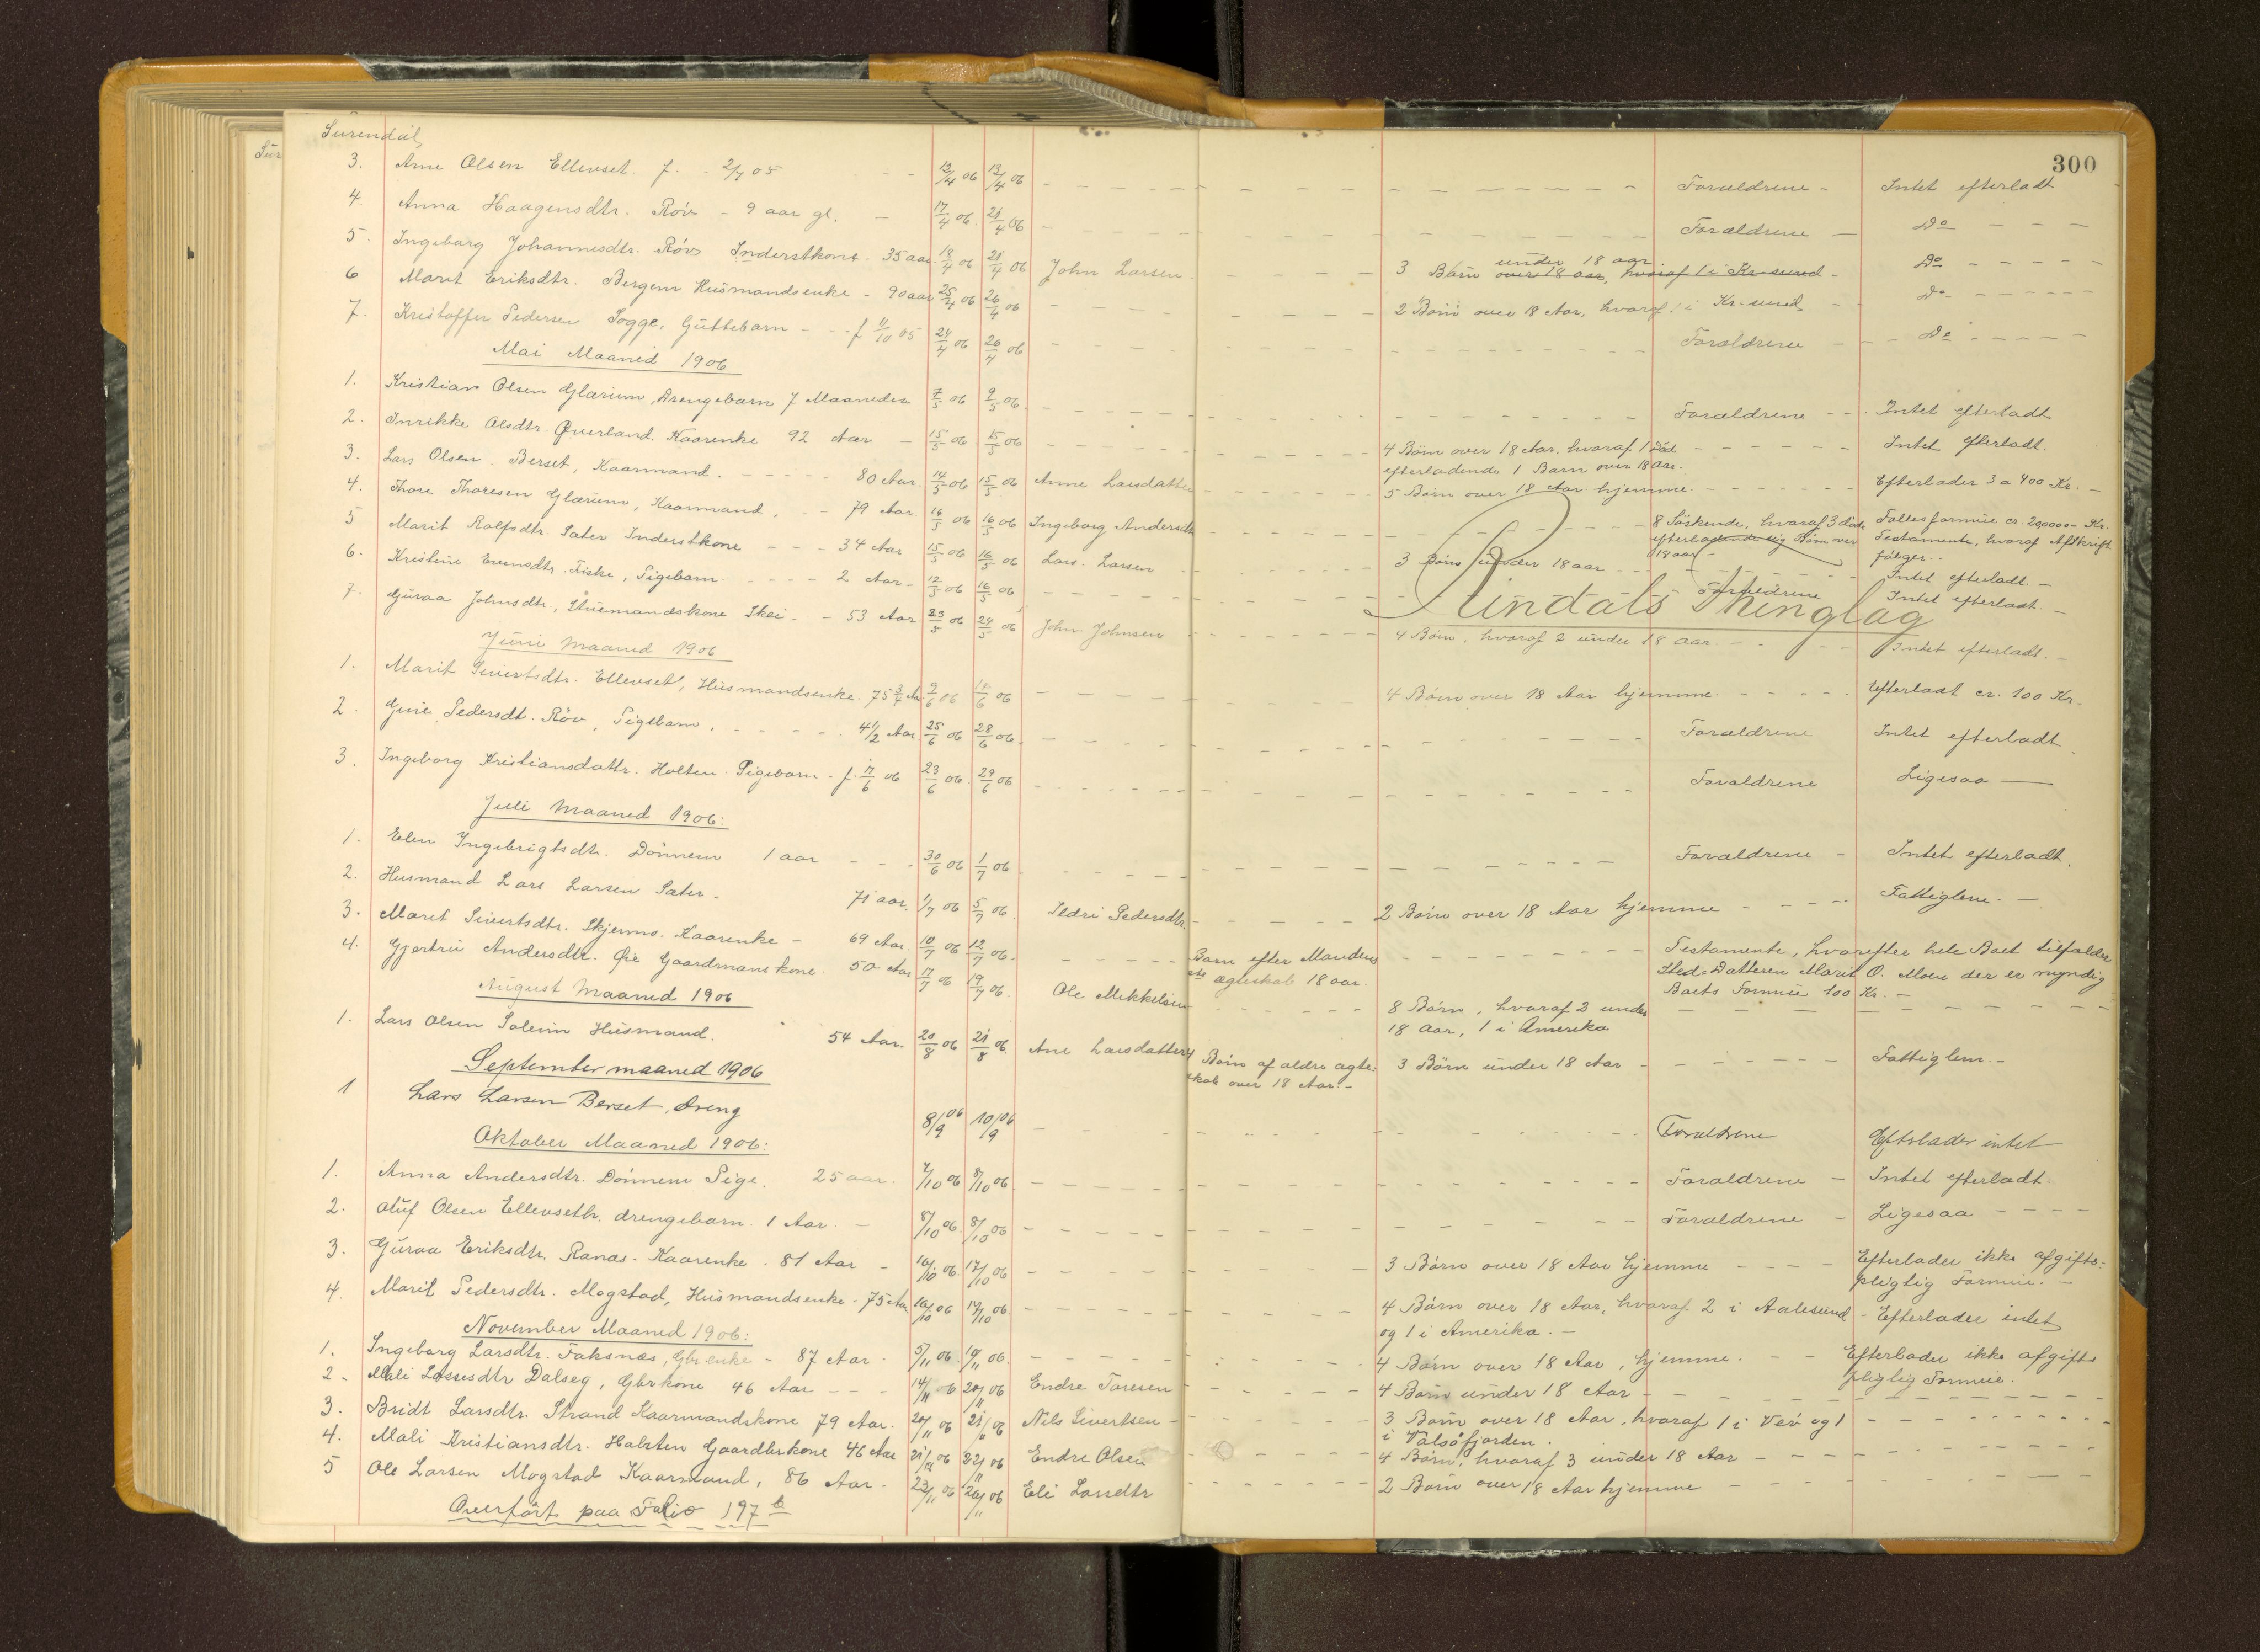 300
Surendal,
3. Arne Olsen Ellevset. f. - 2/7 05 - - 12/4 06 13/4 06 - - - Forældrene - Intet efterladt
4. Anna Haagensdtr. Røv - 9 aar gl. - 17/4 06. 21/4 06 - - - Forældrene - Do - - -
5. Ingeborg Johannesdtr. Røv Inderstkone - 35 aar. 18/4 06 21/4 06 John Larsen - - - 3 Børn under 18 aar over 18 aar, hvoraf 1 i Kr-sund - Do - - -
6 Marit Eriksdtr. Bergem Husmandsenke - 90 aar 25/4 06 26/4 06 - - - 2 Børn over 18 Aar, hvoraf 1 i Kr.sund - Do - - -
7. Kristoffer Pedersen Sogge, Guttebarn - - - f 11/10 05 24/4 06 20/4 06 - - - Forældrene - - Do - - -
Mai Maaned 1906
1. Kristian Olsen Glærum, Drengebarn 7 Maaneder 7/5 06 9/5 06 - - - Forældrene - - Intet efterladt
2. Inrikke Olsdtr. Øverland. Kaarenke 92 Aar - 15/5 06 15/5 06 - - - 4 Børn over 18 Aar, hvoraf 1 død - - - Intet efterladt.
efterladende 1 Barn over 18 aar.
3. Lars Olsen. Berset, Kaarmand. - - - 80 Aar. 14/5 06 15/5 06 Anne Larsdatter - - - 5 Børn over 18 Aar hjemme. - - - Efterlader 3 a 400 Kr. -
4. Thore Thoresen Glærum, Kaarmand, - - 79 Aar. 16/5 06 16/5 06 Ingeborg Andersdtr - - - 8 Søskende, hvoraf 3 døde Fællesformue cr. 20,000 - Kr.
efterladende sig Børn over 18 aar - Testamente, hvoraf Afskrift følger. -
5 Marit Rolfsdtr. Sæter Inderstkone - - - 34 Aar 15/5 06 16/5 06 Lars Larsen - - - 3 Børn under 18 aar - - - Intet efterladt. -
6. Kristine Evensdtr. Fiske, Pigebarn - - - 2 Aar - 12/5 06 16/5 06 - - - Forældrene Intet efterladt. -
Rindals Thinglag
7. Guroa Johnsdtr, Stuemandskone Skei - - 53 Aar 23/5 06 24/5 06 John Johnsen - - - 4 Børn, hvoraf 2 under 18 aar. - - - Intet efterladt. -
Juni Maaned 1906
1. Marit Sivertsdtr. Ellevset, Husmandsenke. 75 3/4 Aar 9/6 06 12/6 06 - - - 4 Børn over 18 Aar hjemme - - - Efterladt cr. 100 Kr.
2. Guri Pedersdt. Røv, Pigebarn, - - - 4 1/2 Aar 25/6 06 28/6 06 - - - Forældrene Intet efterladt
3. Ingeborg Kristiansdattr. Holten. Pigebarn - f. 17/6 06 23/6 06. 29/6 06 - - - Forældrene Ligesaa -
Juli Maaned 1906:
1. Elen Ingebrigtsdtr. Dønnem 1 aar - - - 30/6 06 1/7 06 - - - Forældrene - Intet efterladt.
2. Husmand Lars Larsen Sæter. 71 aar. 1/7 06 5/7 06 Ildri Pedersdtr. - - - 2 Børn over 18 Aar hjemme - - - Fattiglem. -
3. Marit Sivertsdtr. Skjermo. Kaarenke - 69 Aar. 10/7 06 12/7 06. - - - Barn efter Mandens - - - Testamente, hvorefter hele Boet tilfalder
ste ægteskab 18 aar. Sted-Datteren Marit O. Moen der er myndig
Boets Formue 100 Kr. -
4. Gjertru Andersdtr. Øie Gaardmanskone. 50 Aar 17/7 06 19/7 06. Ole Mikkelsen - - - 8 Børn, hvoraf 2 under - - -
18 aar, 1 i Amerika
August Maaned 1906
1. Lars Olsen Solem Husmand. 54 Aar. 20/8 06 21/8 06 Ane Larsdatter 4 Børn af ældre ægte- 3 Børn under 18 Aar - - - Fattiglem. -
skab over 18 Aar. -
September maaned 1906
1 Lars Larsen Berset, dreng 8/9 06 10/9 06 - - - Forældrene Efterlader intet
Oktober Maaned 1906:
1. Anna Andersdtr. Dønnem Pige. 25 aar. 7/10 06 8/10 06. - - - Forældrene - Intet efterladt.
2. Oluf Olsen Ellevseth. drengebarn. 1 Aar. - 8/10 06. 8/10 06 - - - Forældrene - Ligesaa - - -
3. Guroa Eriksdtr. Ranas - Kaarenke. 81 Aar - 16/10 06. 17/10 06 - - - 3 Børn over 18 Aar hjemme - - - Efterlader ikke afgifts-
pligtig Formue. -
4. Marit Pedersdtr. Mogstad, Husmandsenke - 75 Aar 16/10 06 19/10 06 - - - 4 Børn over 18 Aar, hvoraf 2 i Aalesund - Efterlader intet
og 1 i Amerika. -
November Maaned 1906:
1. Ingeborg Larsdtr. Faksnæs, Gbr.enke - 87 Aar. 5/11 06. 10/11 06. - - - 4 Børn over 18 Aar, hjemme. - - Efterlader ikke afgifts
pligtig Formue.
2 - Mali Lassesdtr Dalseg, Gbrkone 46 Aar - - - 14/11 06 20/11 06 Endre Toresen - - - 4 Børn under 18 Aar - - -
3. Bridt Larsdtr. Strand Kaarmandskone 79 Aar. 20/11 06 21/11 06 Nils Sivertsen - - - 3 Børn over 18 Aar, hvoraf 1 i Vev og 1 - - -
i Valsøfjorden.
4. Mali Kristiansdtr. Halsten Gaardbrkone 46 Aar 21/11 06 22/11 06 Endre Olsen - - - 4 Børn, hvoraf 3 under 18 Aar - - -
5 Ole Larsen Mogstad Kaarmand, 86 Aar. 23/11 06 26/11 06 Eli Larsdtr - - - 2 Børn over 18 Aar hjemme - - -
Overført paa Folio 197 b